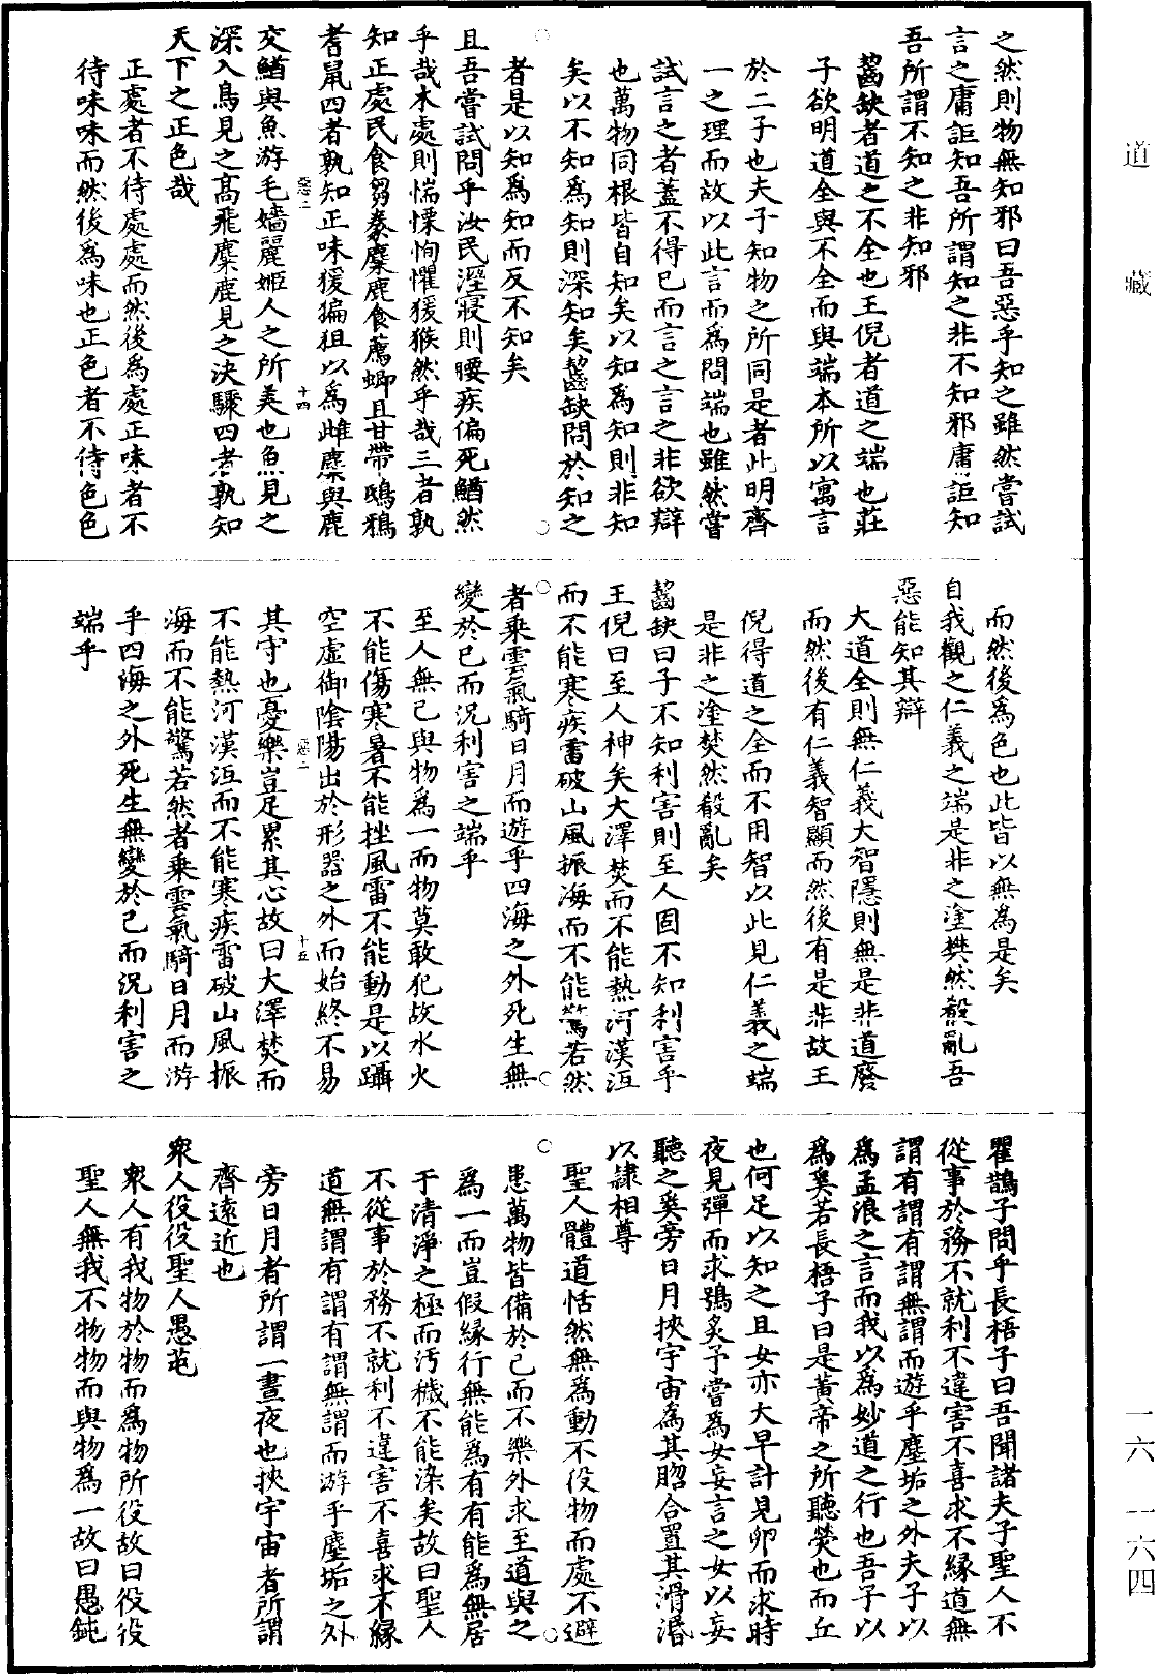 之然則物無知邪曰吾惡乎知之雖然嘗試
言之庸詎知吾所謂知之非不知邪庸詎知
吾所謂不知之非知邪
齧缺者道之不全也王倪者道之端也莊
子欲明道全與不全而與端本所以寓言
於二子也夫子知物之所同是者此明齊
一之理而故以此言而為問端也雖然嘗
試言之者蓋不得已而言之言之非欲辯
也萬物同根皆自知矣以知為知則非知
矣以不知為知則深知矣齧缺問於知之
者是以知為知而反不知矣
且吾嘗試問乎汝民溼寢則腰疾偏死鰌然
乎哉木處則惴慄恂懼猨猴然乎哉三者孰
知正處民食芻豢麋鹿食薦蝍且甘帶鴟鴉
耆鼠四者孰知正味猨猵狙以為雌麋與鹿
交鰌與魚游毛嬙麗姬人之所美也魚見之
深入鳥見之高飛麋鹿見之決驟四者孰知
天下之正色哉
正處者不待處處而然後為處正味者不
待味味而然後為味也正色者不待色色
惡二
十四
而然後為色也此皆以無為是矣
自我觀之仁義之端是非之塗樊然殽亂吾
惡能知其辯
大道全則無仁義大智隱則無是非道廢
而然後有仁義智顯而然後有是非故王
倪得道之全而不用智以此見仁義之端
是非之塗焚然殽亂矣
齧缺曰子不知利害則至人固不知利害乎
王倪曰至人神矣大澤焚而不能熱河漢沍
而不能寒疾雷破山風振海而不能驚若然
者乘雲氣騎日月而遊乎四海之外死生無
變於已而況利害之端乎
至人無已與物為一而物莫敢犯故水火
不能傷寒暑不能挫風雷不能動是以躡
空虛御陰陽出於形器之外而始終不易
其守也憂樂豈足累其心故曰大澤焚而
不能熱河漢沍而不能寒疾雷破山風振
海而不能驚若然者乘雲氣騎日月而游
乎四海之外死生無變於已而況利害之
端乎
惡二
十五
瞿鵲子問乎長梧子曰吾聞諸夫子聖人不
從事於務不就利不違害不喜求不緣道無
謂有謂有謂無謂而遊乎塵垢之外夫子以
為孟浪之言而我以為妙道之行也吾子以
為奚若長梧子曰是黃帝之所聽熒也而丘
也何足以知之且女亦大早計見卵而求時
夜見彈而求鴞炙予嘗為女妄言之女以妄
聽之奚旁日月挾宇宙為其脗合置其滑涽
以隸相尊
聖人體道恬然無為動不役物而處不避
患萬物皆備於已而不樂外求至道與之
為一而豈假緣行無能為有有能為無居
于清淨之極而汚穢不能染矣故曰聖人
不從事於務不就利不違害不喜求不緣
道無謂有謂有謂無謂而游乎塵垢之外
旁日月者所謂一晝夜也挾宇宙者所謂
齊遠近也
衆人役役聖人愚芚
衆人有我物於物而為物所役故曰役役
聖人無我不物物而與物為一故曰愚鈍
道藏
一六 一六四